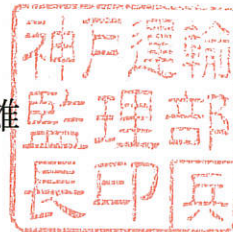 神戸運輸
監理部
長印兵